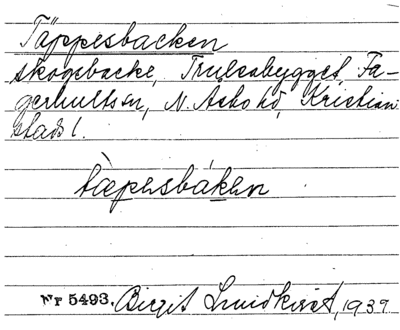 Täppesbacken
skogsbacke, Trulsabygget, Fa-
gerhultssn, N. Åsbo hd, Kristian
stads l.
tæpesbákən
Nr 5493. Birgit Lundkvist, 1939